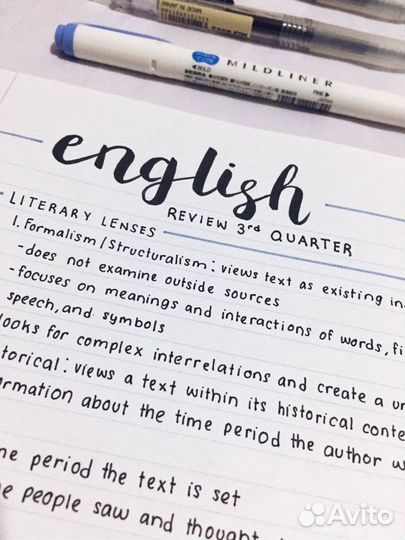 MADE IN JAPAN
MILDLINER
BOLD
FINE
english
REVIEW 3rd QUARTER
LITERARY LENSES
1. Formalism/Structuralism: views text as existing
-does not examine outside sources
-focuses on meanings and interactions of words,
speech, and symbols
looks for complex interrelations and create a
torical: views a text within its historical
ormation about the time period the author
time period the text is set
people saw and thought
Avito